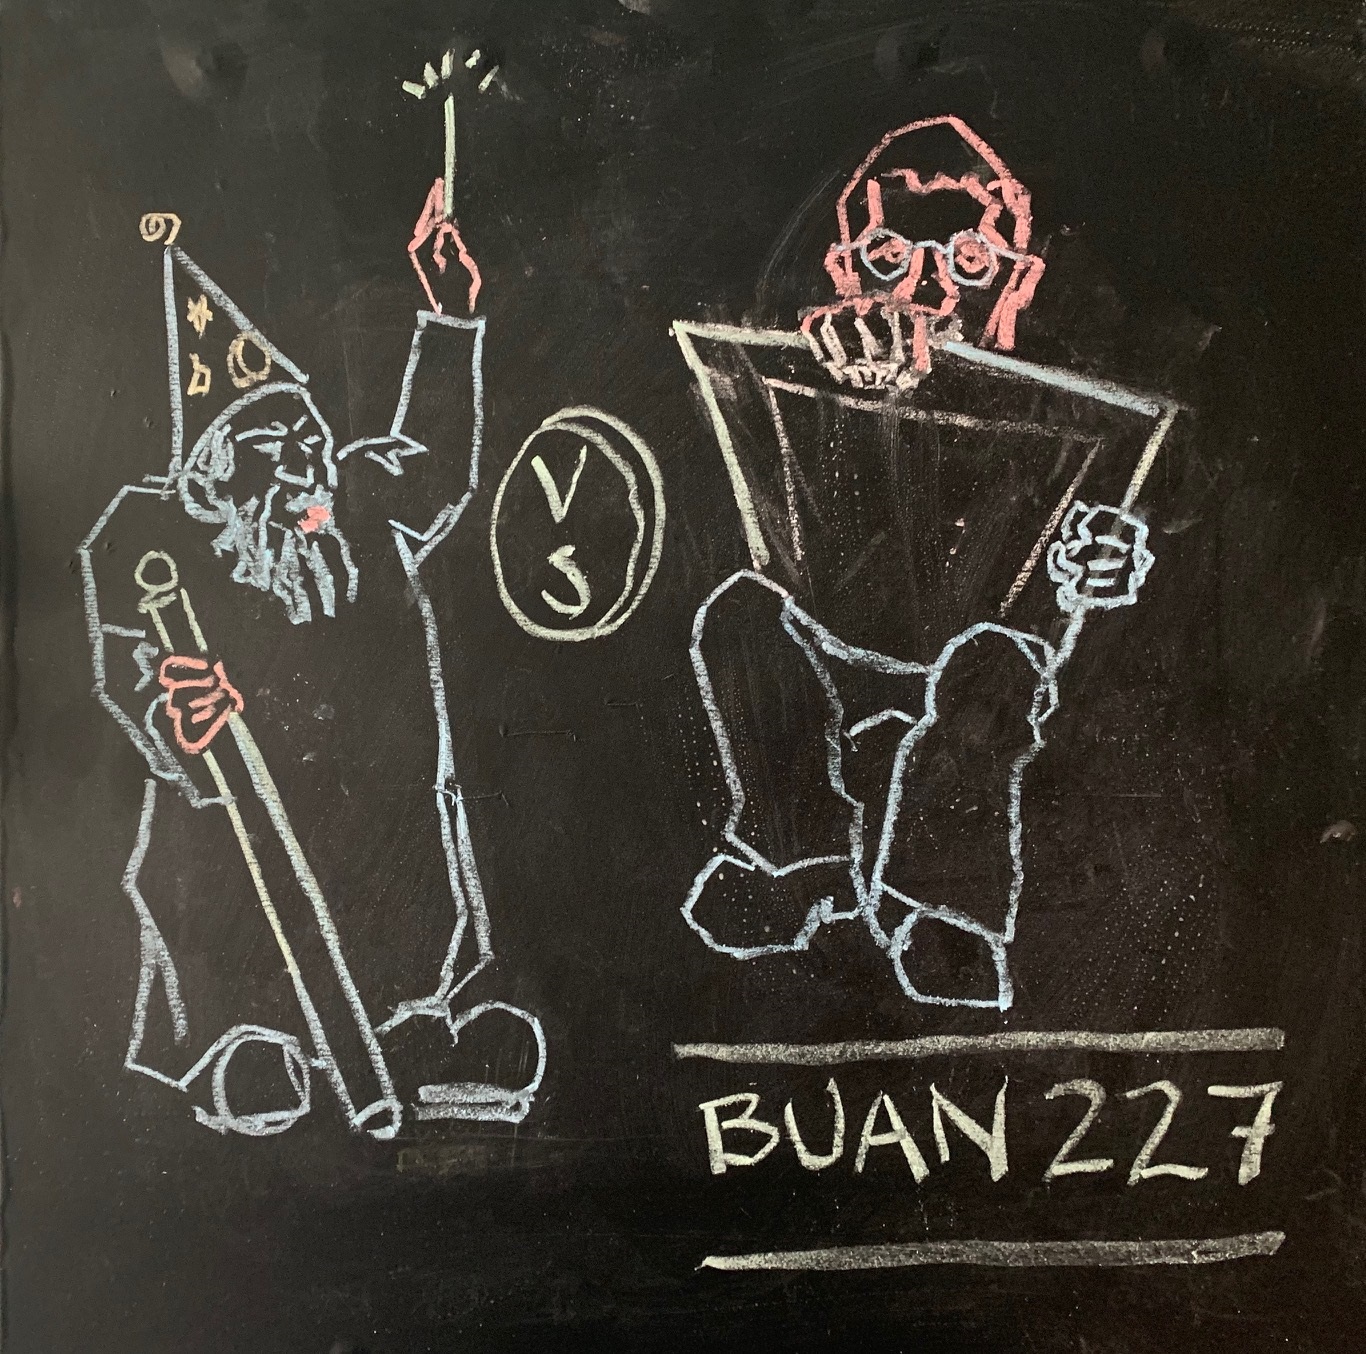 V
S
BUAN 227